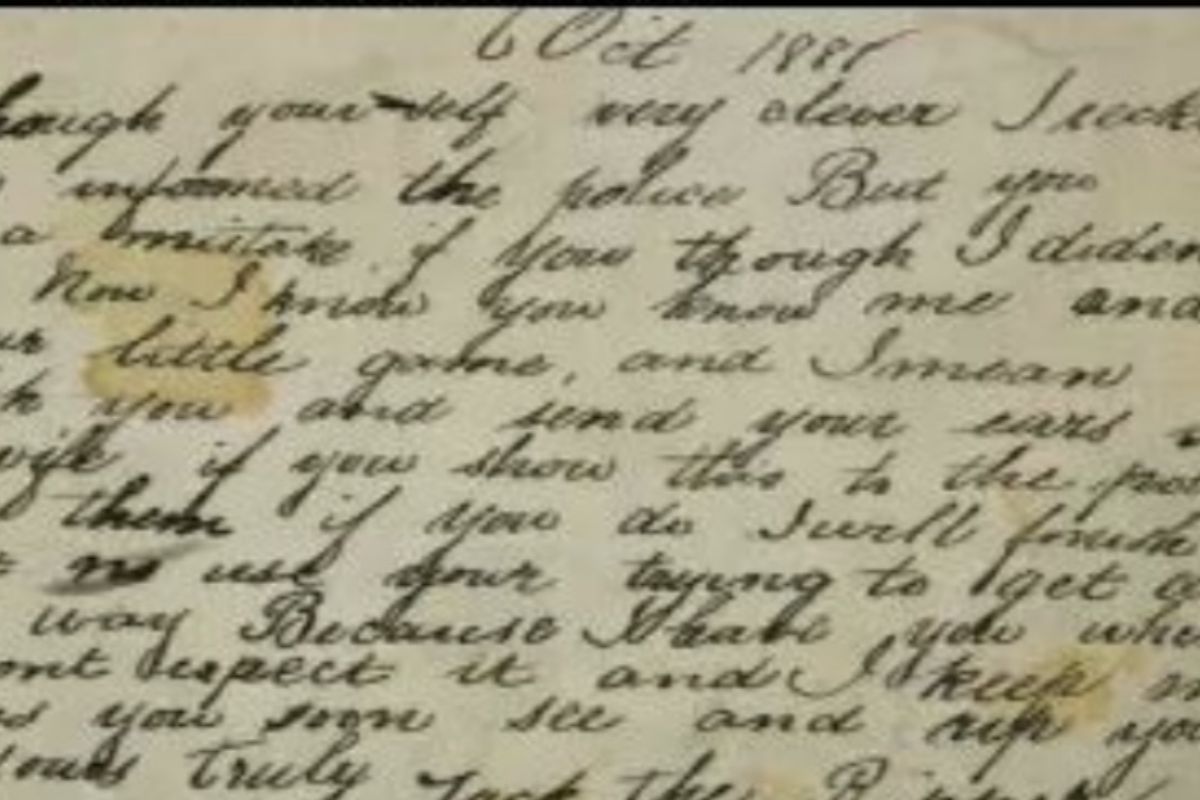 6 Oct 1888
though yourself very clever I reck
informed the police But you
a mistake if you though I diden
Now I know you know me and
ur little game, and I mean
k you and send your ears
wife if you show this to the pol
them if you do I will finish
t no use your trying to get o
way Because I have you whe
ont expect it and I keep m
as you soon see and rip you
Yours truly Jack the Ripper